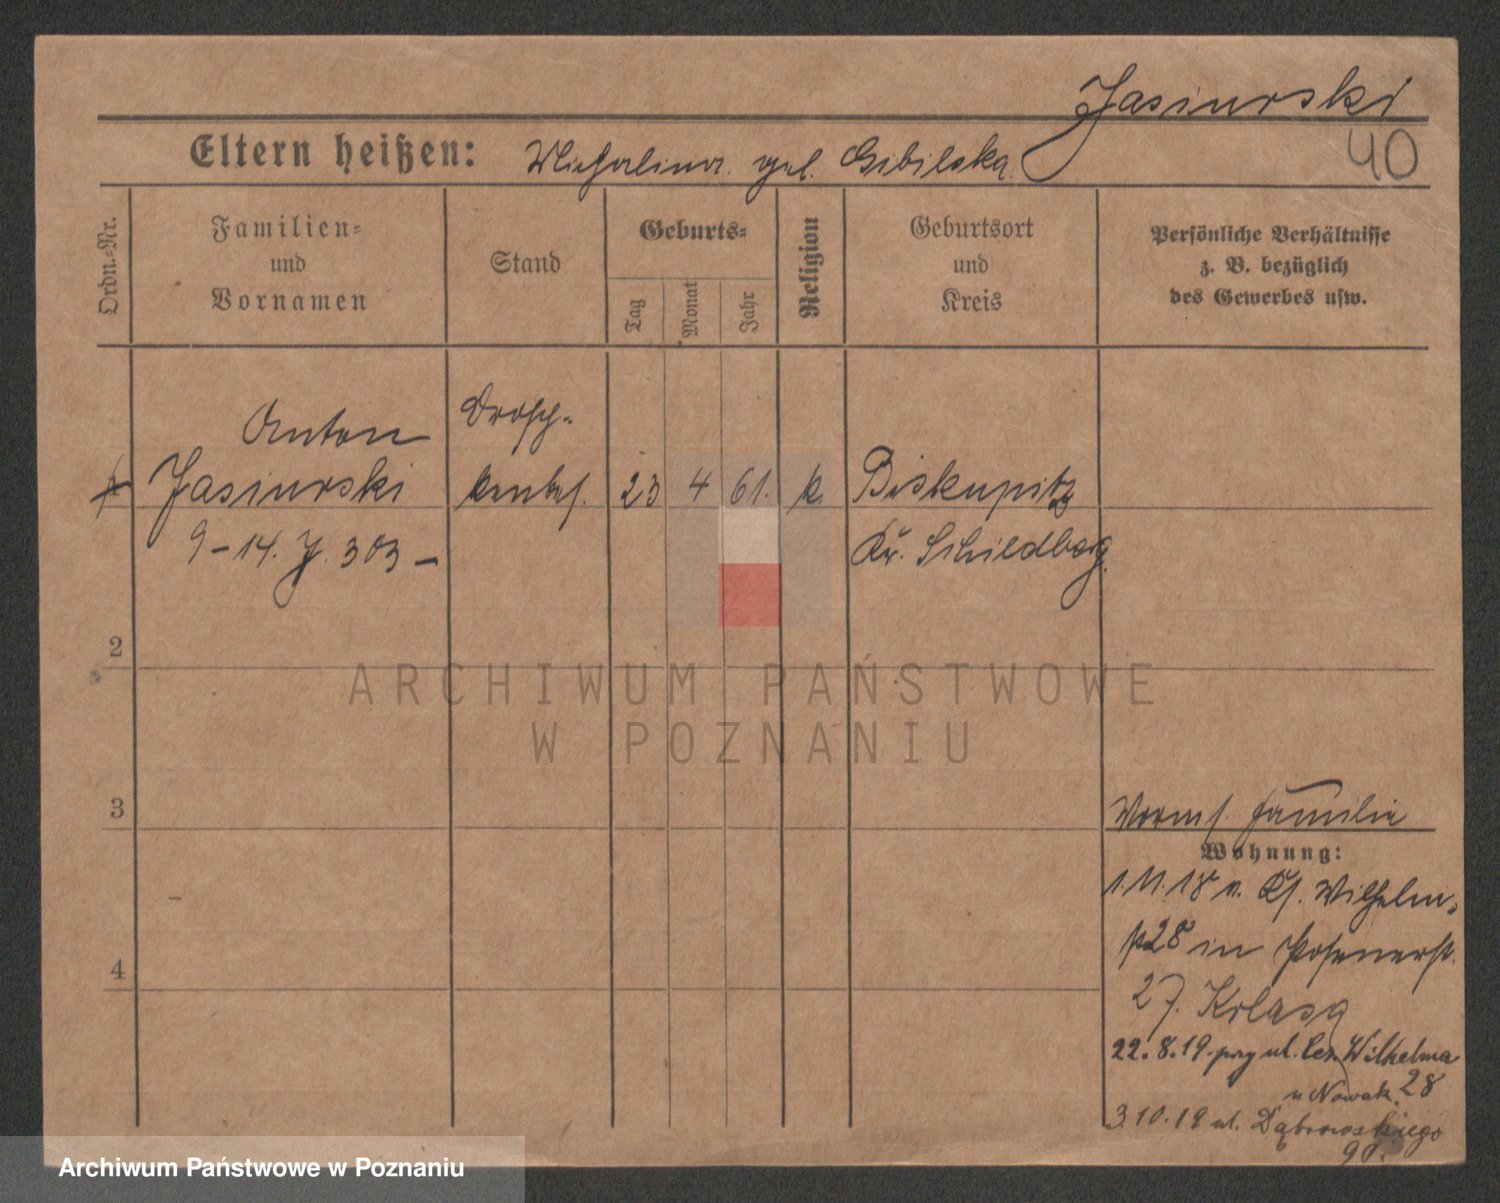 Jasinski
Eltern heißen: Michalina geb. Gibilska
40
Ordn.-Nr.
Familien-
und
Vornamen
Stand
Geburts-
Tag
Monat
Jahr
Religion
Geburtsort
und
Kreis
Persönliche Verhältnisse
z. B. bezüglich
des Gewerbes usw.
Anton
Jasinski
9-14. J. 303-
Drosch-
kenbes.
23 4 61. k.
Biskupitz
Kr. Schildberg
2
3
4
Familie
Wohnung:
1.11.18 v. Wilhelm-
28 in Posenerst.
27.
22.8.19. przy ul. Ces. Wilhelma
28
u Nowak.
3.10.19 ul. Dąbrowskiego
90.
ARCHIWUM PAŃSTWOWE
W POZNANIU
Archiwum Państwowe w Poznaniu